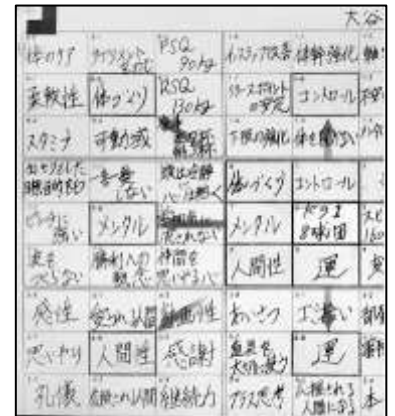 大谷
体のケア
サプリメント
をのむ
FSQ
90kg
インステップ改善
体幹強化
軸
柔軟性
体づくり
RSQ
130kg
リリースポイント
の安定
コントロール
スタミナ
可動域
下肢の強化
体を開かない
はっきりとした
目標、目的をもつ
一喜一憂
しない
頭は冷静に
心は熱く
体づくり
コントロール
ピンチに
強い
メンタル
雰囲気に
流されない
メンタル
ドラ1
8球団
160
波を
つくらない
勝利への
執念
仲間を
思いやる心
人間性
運
変
感性
愛される人間
計画性
あいさつ
ゴミ拾い
部
思いやり
人間性
感謝
道具を
大切に使う
運
礼儀
信頼される人間
継続力
プラス思考
応援される
人間になる
本